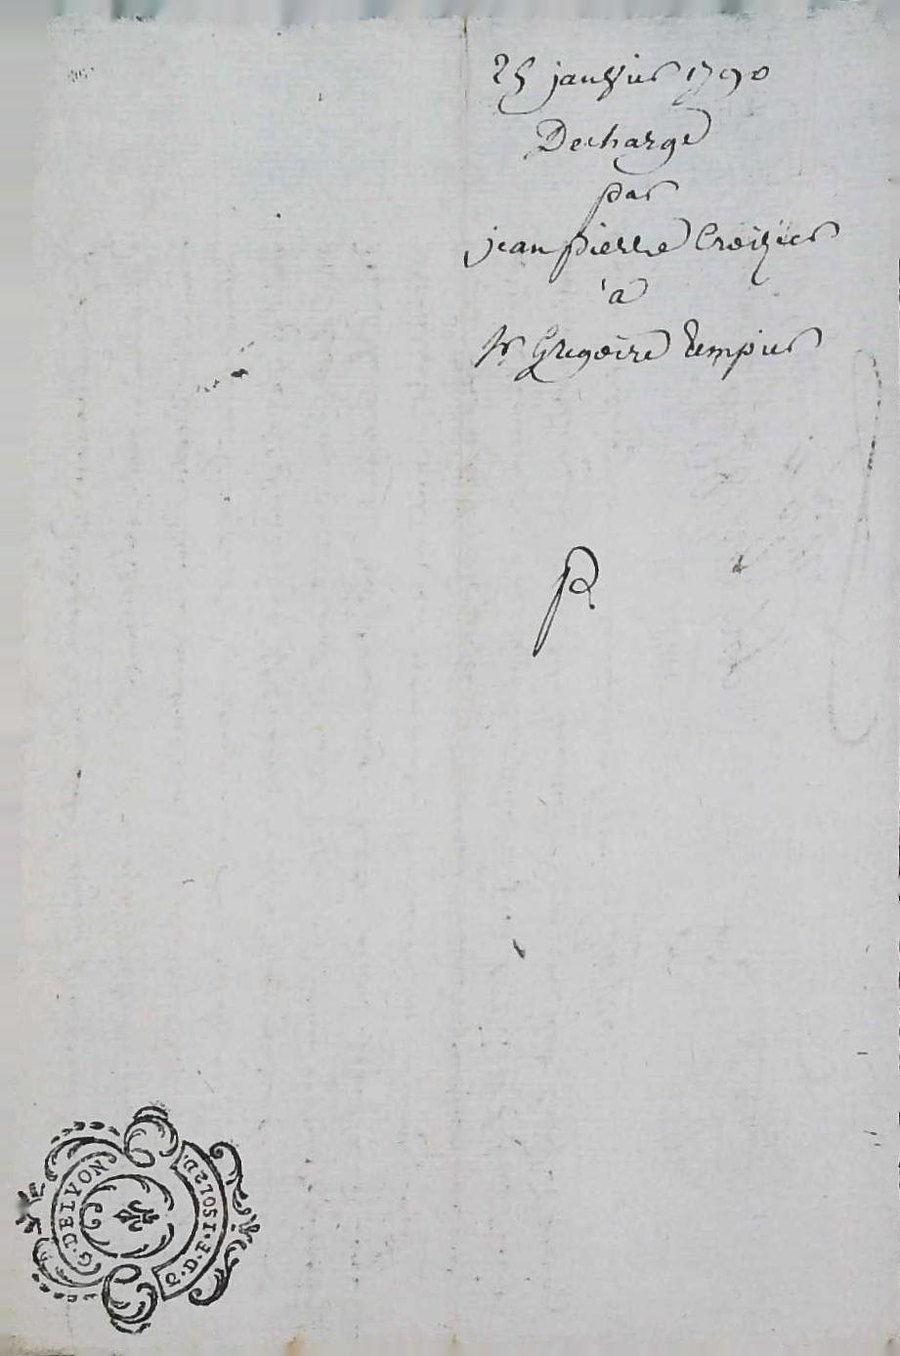 25 janvier 1790
Decharge
par
jean pierre Croizier
à
Sr Gregoire Tempier
G. DE LYON